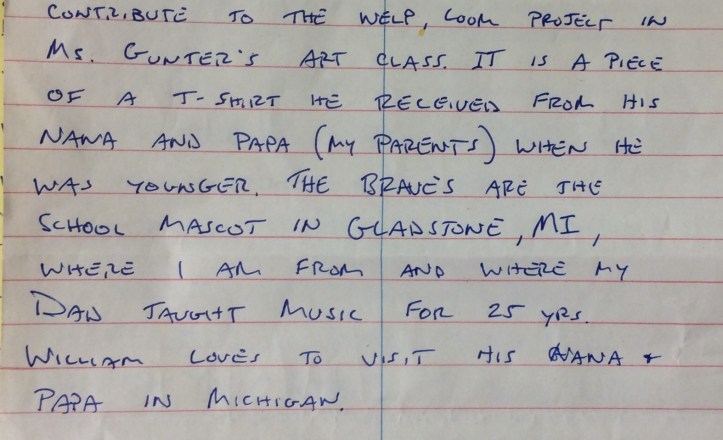 CONTRIBUTE TO THE WELP, LOOM PROJECT IN
MS. GUNTER'S ART CLASS. IT IS A PIECE
OF A T-SHIRT HE RECEIVED FROM HIS
NANA AND PAPA (MY PARENTS) WHEN HE
WAS YOUNGER. THE BRAVES ARE THE
SCHOOL MASCOT IN GLADSTONE, MI,
WHERE I AM FROM AND WHERE MY
DAD TAUGHT MUSIC FOR 25 YRS.
WILLIAM LOVES TO VISIT HIS NANA +
PAPA IN MICHIGAN.